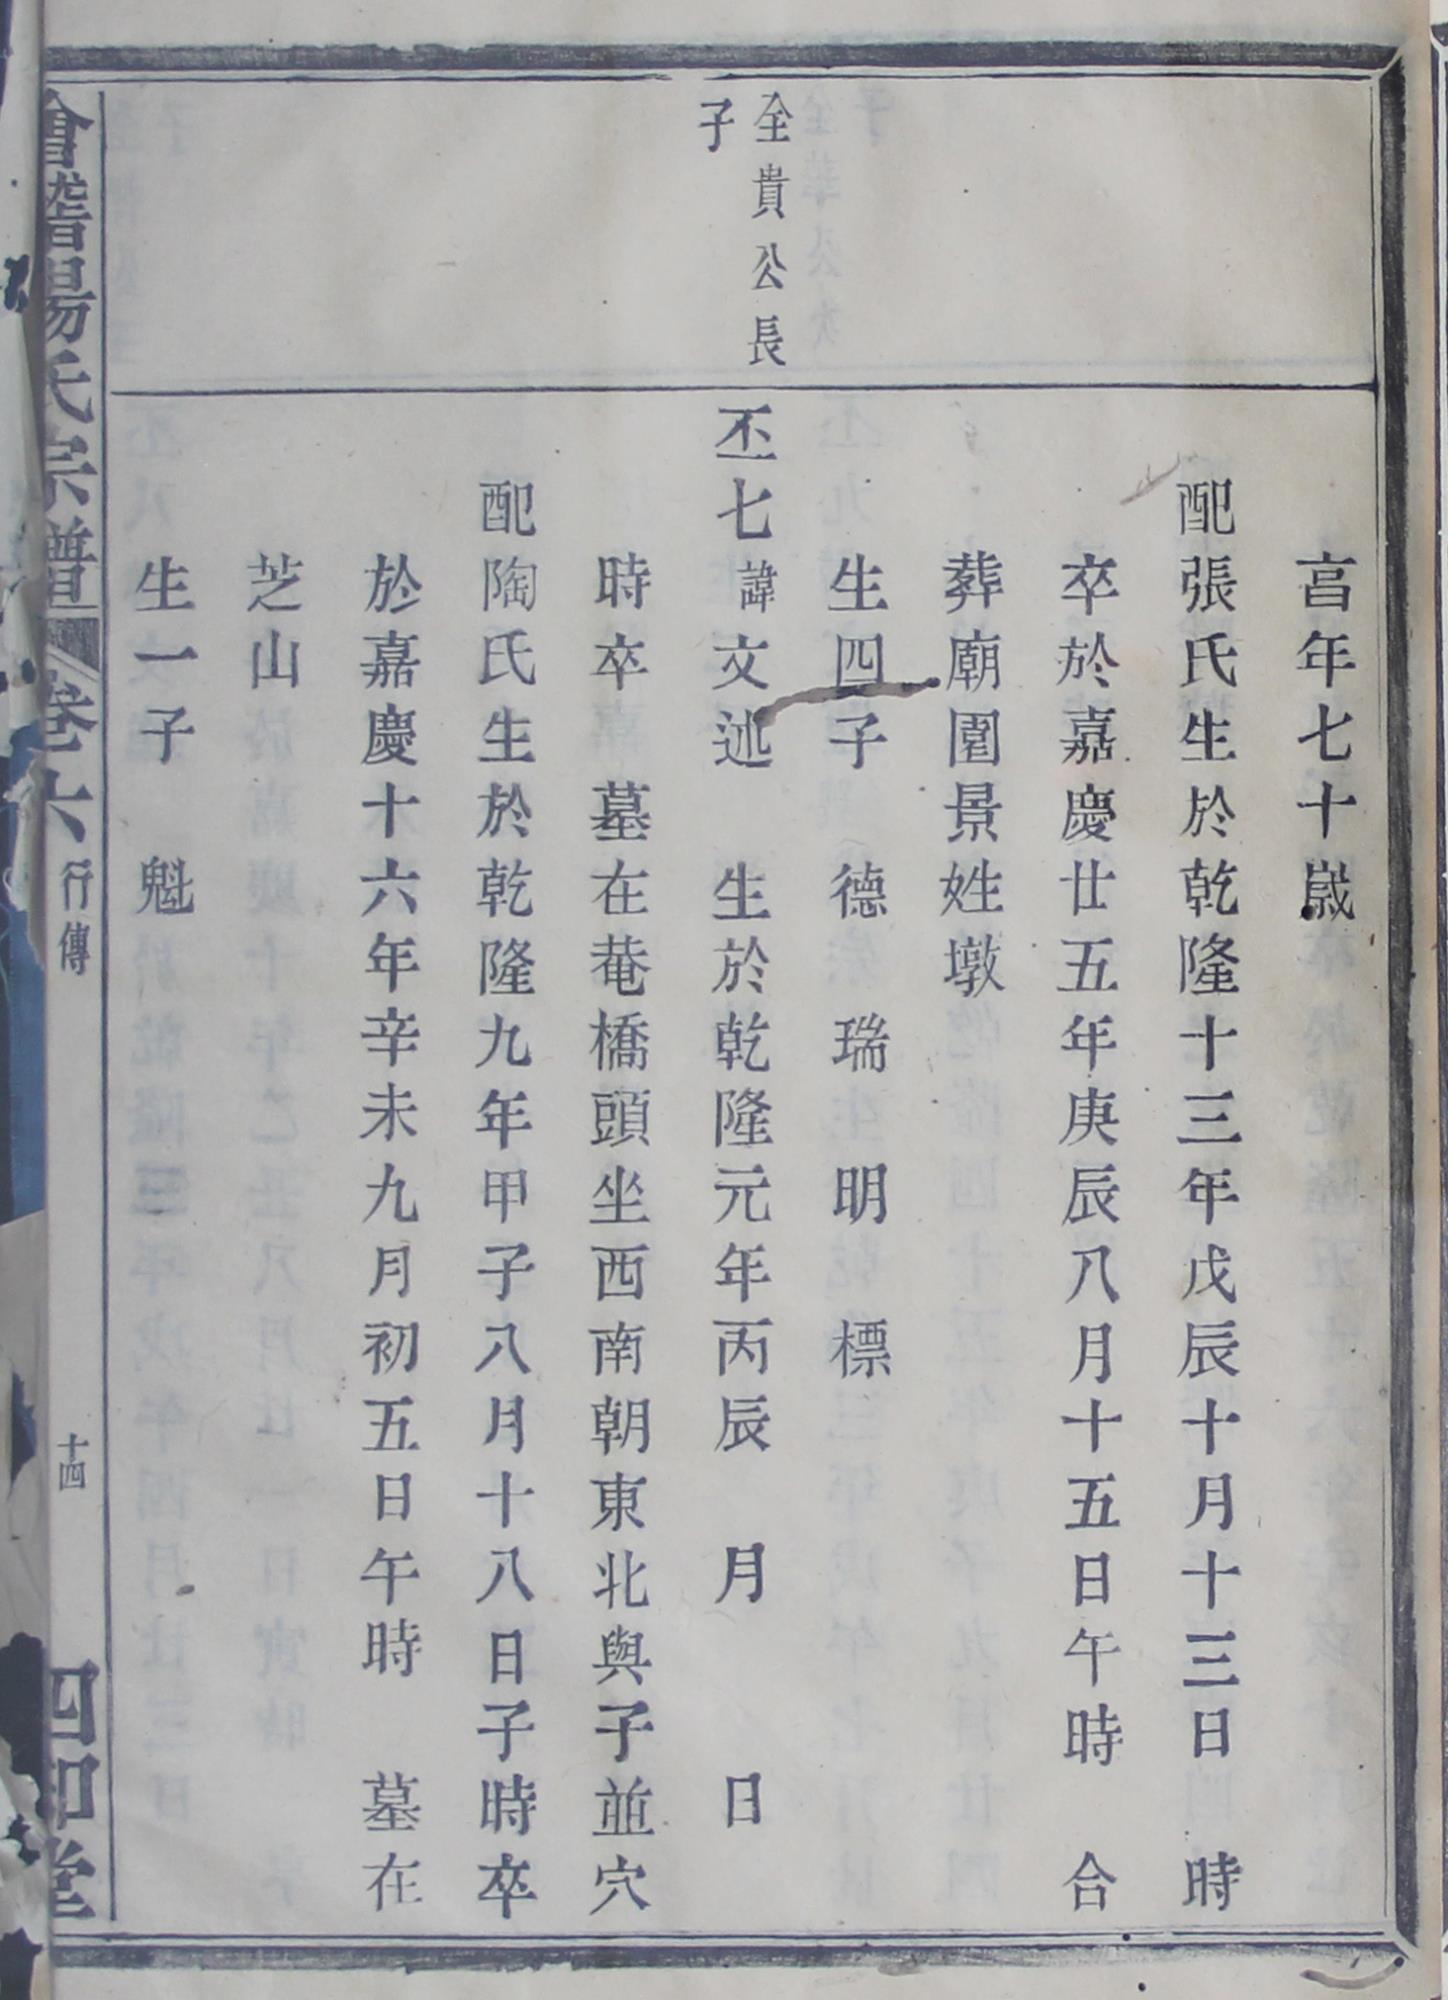 亯年七十歲
配張氏生於乾隆十三年戊辰十月十三日　時
卒於嘉慶廿五年庚辰八月十五日午時　合
葬廟園景姓墩
生四子　德　瑞　明　標
全貴公長
子
丕七諱文述　生於乾隆元年丙辰　月　日
時卒　墓在菴橋頭坐西南朝東北與子並穴
配陶氏生於乾隆九年甲子八月十八日子時卒
於嘉慶十六年辛未九月初五日午時　墓在
芝山
生一子　魁
會稽楊氏宗譜　卷六　行傳　十四　四知堂